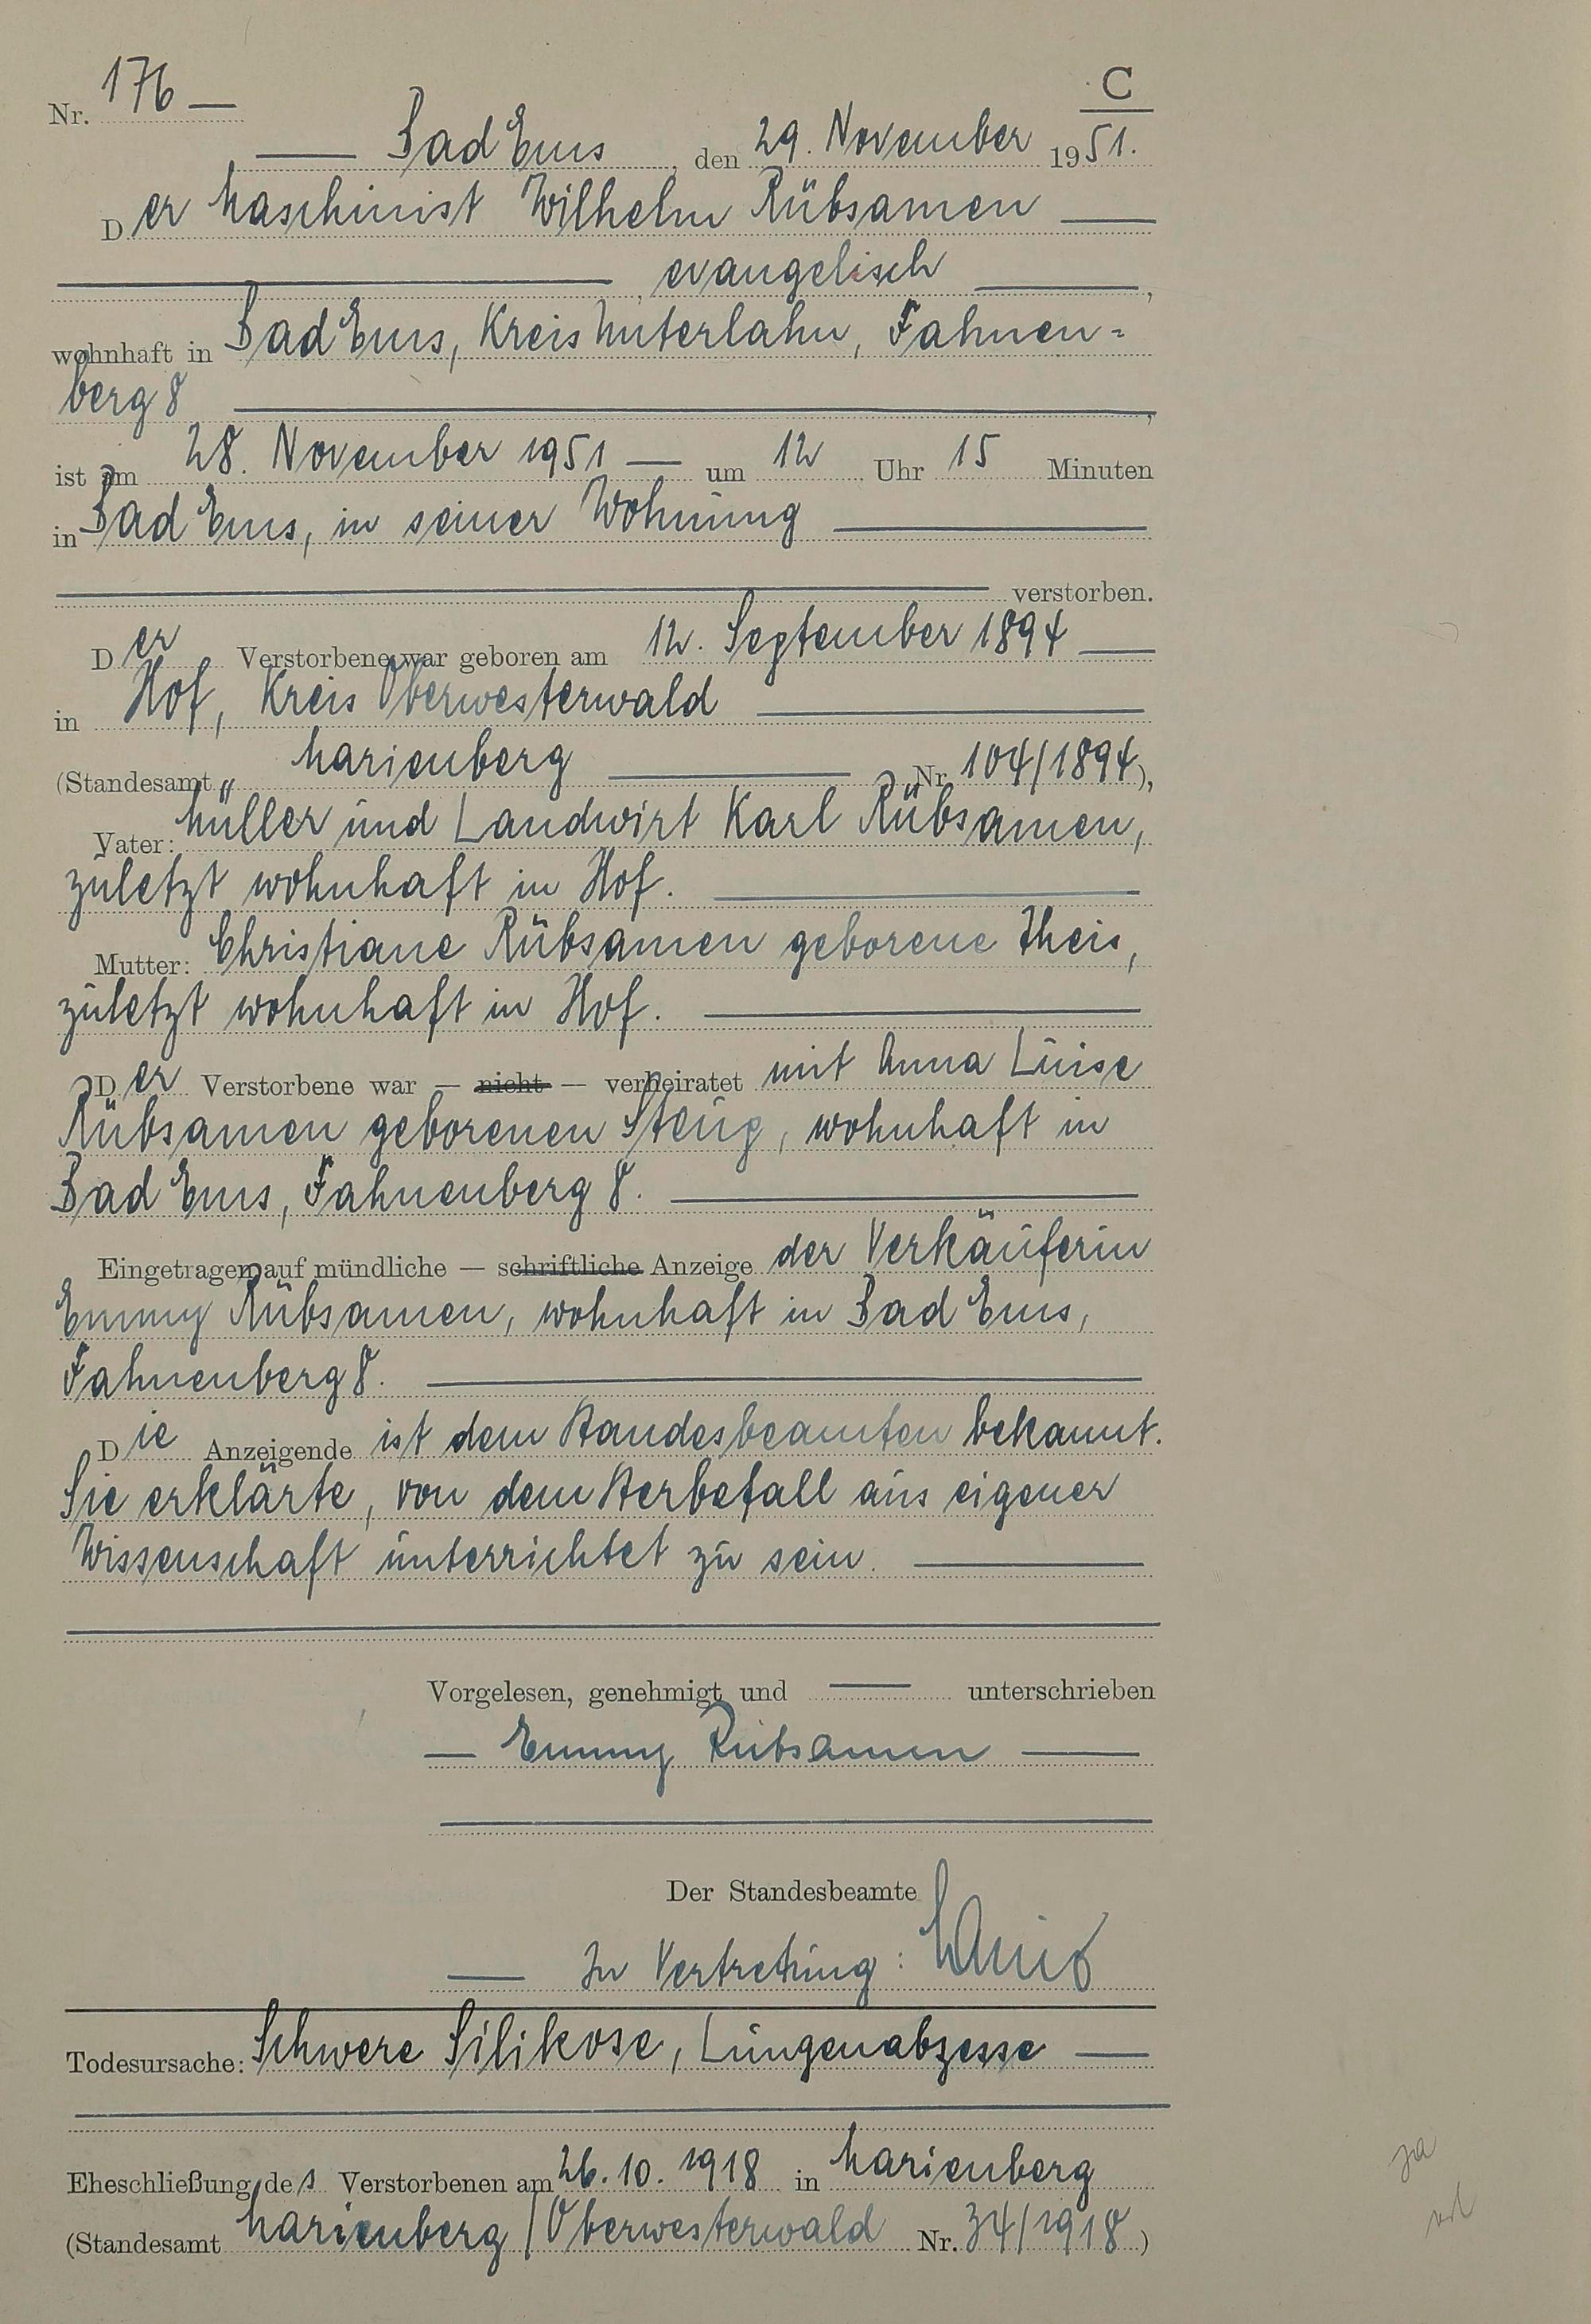 C
Nr. 176 —
— Bad Ems, den 29. November 1951.
Der Maschinist Wilhelm Rübsamen —
— , evangelisch — ,
wohnhaft in Bad Ems, Kreis Unterlahn, Fahnen=
berg 8 — ,
ist am 28. November 1951 — um 12 Uhr 15 Minuten
in Bad Ems, in seiner Wohnung —
— verstorben.
Der Verstorbene war geboren am 12. September 1894 —
in Hof, Kreis Oberwesterwald —
(Standesamt Marienberg — Nr. 104/1894),
Vater: Müller und Landwirt Karl Rübsamen,
zuletzt wohnhaft in Hof. —
Mutter: Christiane Rübsamen geborene Theis,
zuletzt wohnhaft in Hof. —
Der Verstorbene war — nicht — verheiratet mit Anna Luise
Rübsamen geborenen Steup, wohnhaft in
Bad Ems, Fahnenberg 8. —
Eingetragen auf mündliche — schriftliche Anzeige der Verkäuferin
Emmy Rübsamen, wohnhaft in Bad Ems,
Fahnenberg 8. —
Die Anzeigende ist dem Standesbeamten bekannt.
Sie erklärte, von dem Sterbefall aus eigener
Wissenschaft unterrichtet zu sein. —
Vorgelesen, genehmigt und — unterschrieben
— Emmy Rübsamen —
Der Standesbeamte
— In Vertretung:
Todesursache: Schwere Silikose, Lungenabzesse —
Eheschließung des Verstorbenen am 26.10.1918 in Marienberg
(Standesamt Marienberg/Oberwesterwald Nr. 34/1918)
ja